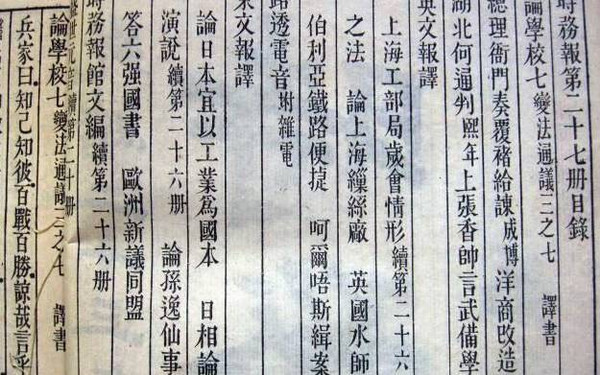 時務報第二十七册目錄
論學校七 變法通議三之七 譯書
總理衙門奏覆褚給諫成博 洋商改造
湖北何通判熙年上張香帥言武備學
英文報譯
上海工部局歲會情形 續第二十六
之法 論上海繅絲廠 英國水師
伯利亞鐵路便捷 呵爾唔斯緝案
路透電音 附雜電
東文報譯
論日本宜以工業爲國本 日相論
演說 續第二十六册 論孫逸仙事
答六强國書 歐洲新議同盟
時務報館文編 續第二十六册
論學校七 變法通議三之七 譯書
兵家曰知己知彼百戰百勝諒哉言乎